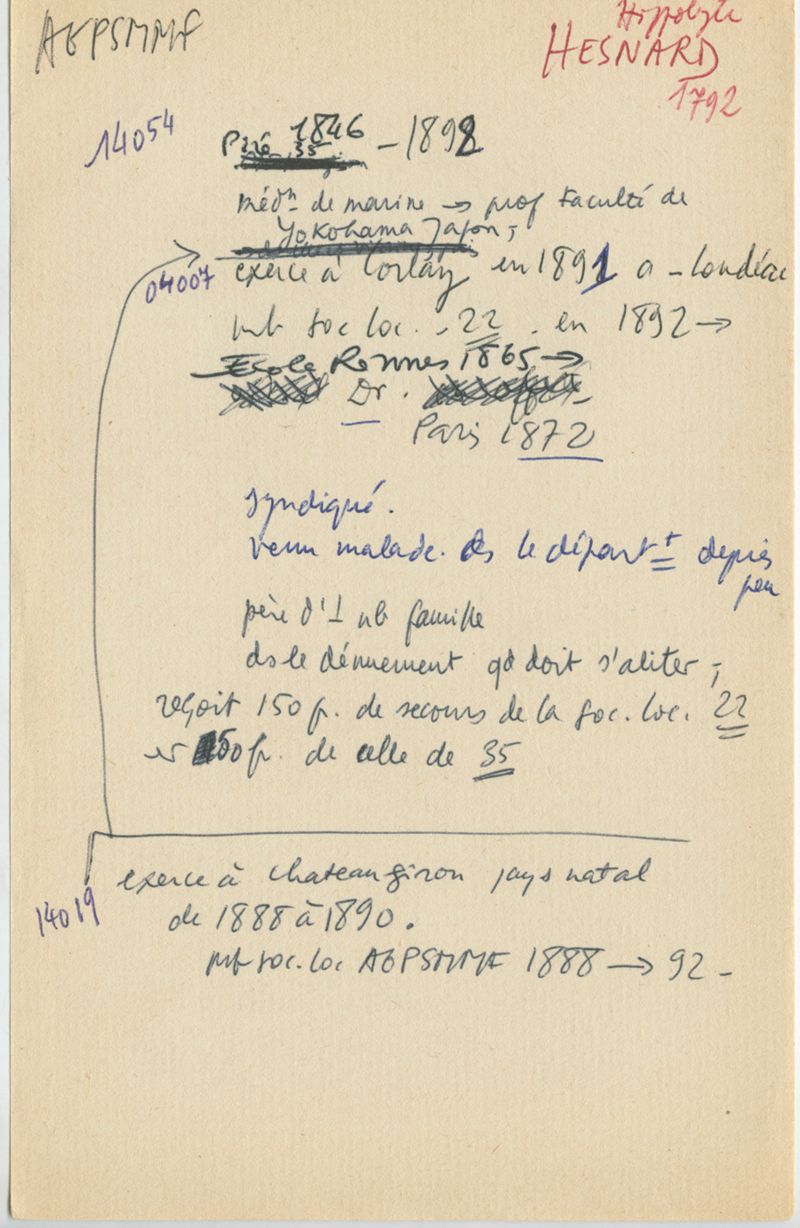 AGPSMMF
Hippolyte
HESNARD
1792
14054
Piré 35
1846 - 1892
médn de marine → prof Faculté de
Yokohama Japon,
04007
exerce à Corlay en 1891 a - Loudéac
mb soc loc. - 22 - en 1892 →
Ecole Rennes 1865 →
Dr.
Paris 1872
syndiqué.
venu malade ds le départt depuis
peu
père d'1 nb famille
ds le dénuement qd doit s'aliter,
reçoit 150 fr. de secours de la soc. loc. 22
et 50 fr. de celle de 35
14019
exerce à Chateaugiron pays natal
de 1888 à 1890.
mb soc. loc AGPSMMF 1888 → 92 -